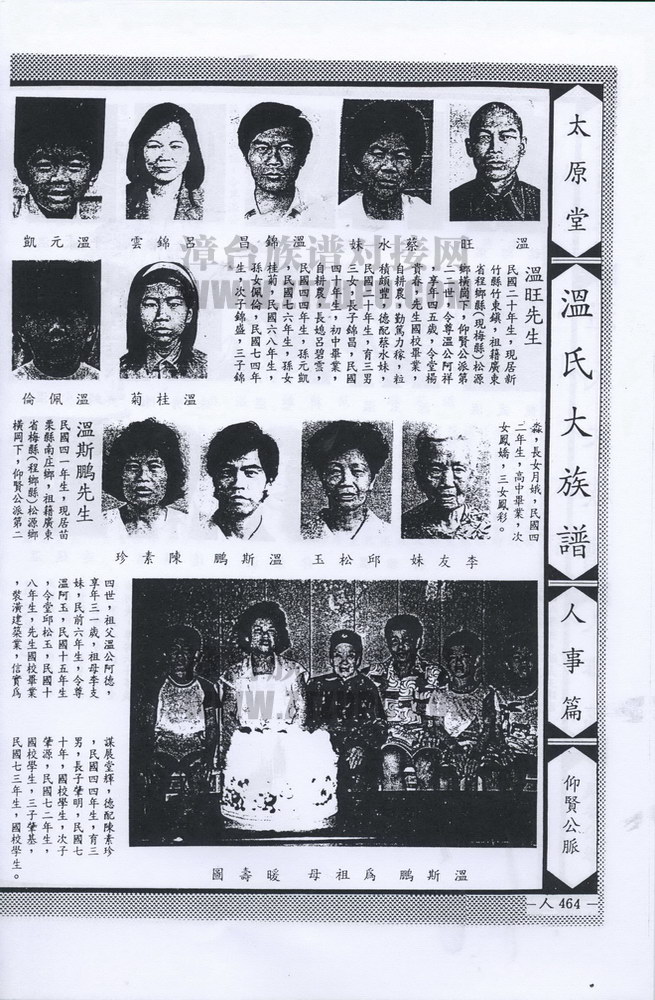 太原堂
溫氏大族譜
人事篇
仰賢公脈
人 464
溫旺
蔡水妹
溫錦昌
呂錦雲
溫元凱
溫旺先生
民國二十年生，現居新
竹縣竹東鎮，祖籍廣東
省程鄉縣（現梅縣）松源
鄉橫岡下，仰賢公派第
二二世，令尊溫公阿祥
，享年四五歲，令堂楊
貴春，先生國校畢業，
自耕農，勤篤力稼，粒
積頗豐，德配蔡水妹，
民國二十年生，育三男
三女，長子錦昌，民國
四十年生，初中畢業，
自耕農，長媳呂碧雲，
民國四四年生，孫元凱
，民國七六年生，孫女
桂菊，民國六八年生，
孫女佩倫，民國七四年
生，次子錦盛，三子錦
溫桂菊
溫佩倫
淼，長女月娥，民國四
二年生，高中畢業，次
女鳳嬌，三女鳳彩。
李友妹
邱松玉
溫斯鵬
陳素珍
溫斯鵬先生
民國四一年生，現居苗
栗縣南庄鄉，祖籍廣東
省梅縣（程鄉縣）松源鄉
橫岡下，仰賢公派第二
四世，祖父溫公阿德，
享年三一歲，祖母李支
妹，民前六年生，令尊
溫阿玉，民國十五年生
，令堂邱松玉，民國十
八年生，先生國校畢業
，裝潢建築業，信實為
謀展堂輝，德配陳素珍
，民國四四年生，育三
男，長子肇明，民國七
十年，國校學生，次子
肇源，民國七二年生，
國校學生，三子肇基，
民國七三年生，國校學生。
溫斯鵬為祖母暖壽圖
漳台族谱对接网